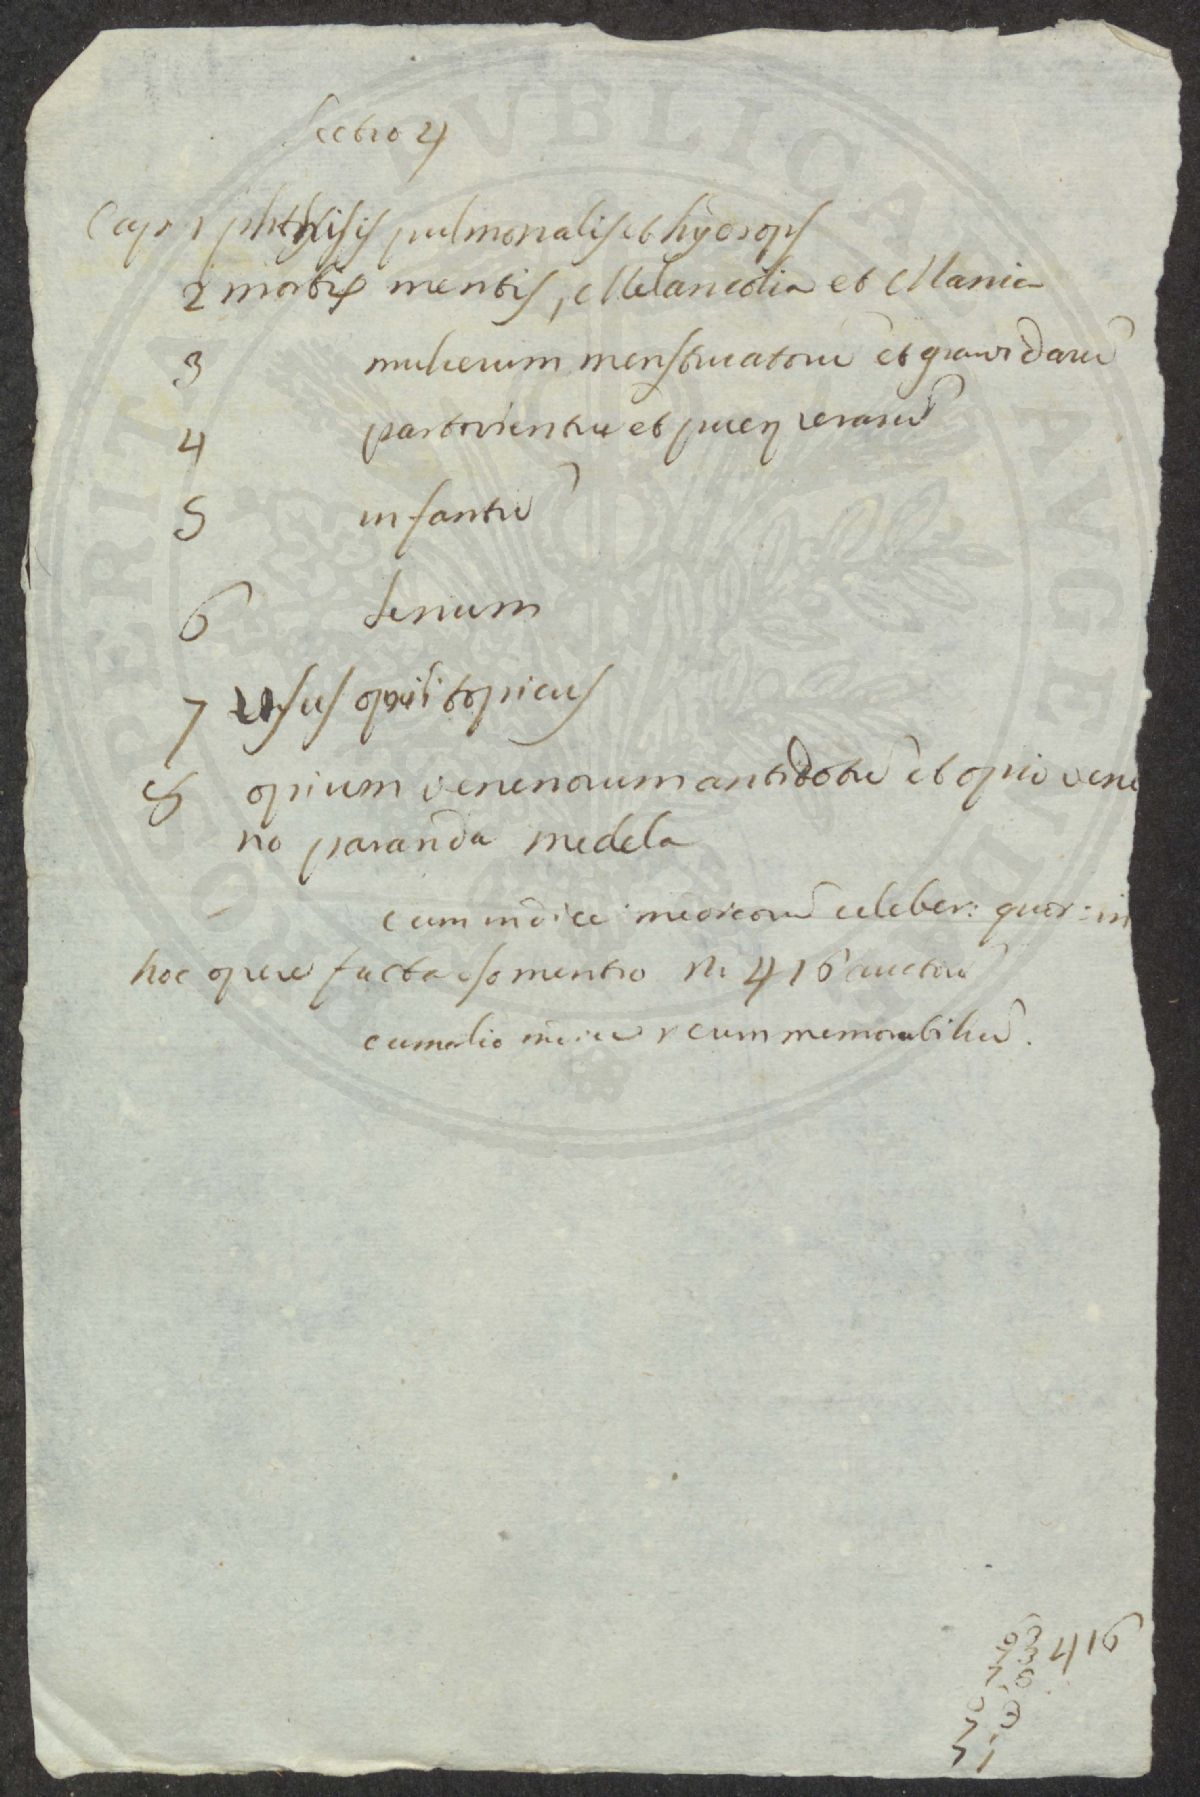 Sectio 4
Cap 1 phthisis pulmonalis et hydrops
2 morbis mentis, Melancolia et Mania
3 mulierum menstruatarū et gravidarū
4 parturientiū et puerperarū
5 infantiū
6 senum
7 usus opii topicus
8 opium venenorum antidotū et opio vene
no paranda medela
cum indice medicorū celeber: quor: in
hoc opere facta est mentio N: 416 auctorū
cum alio indice rerum memorabiliū.
416